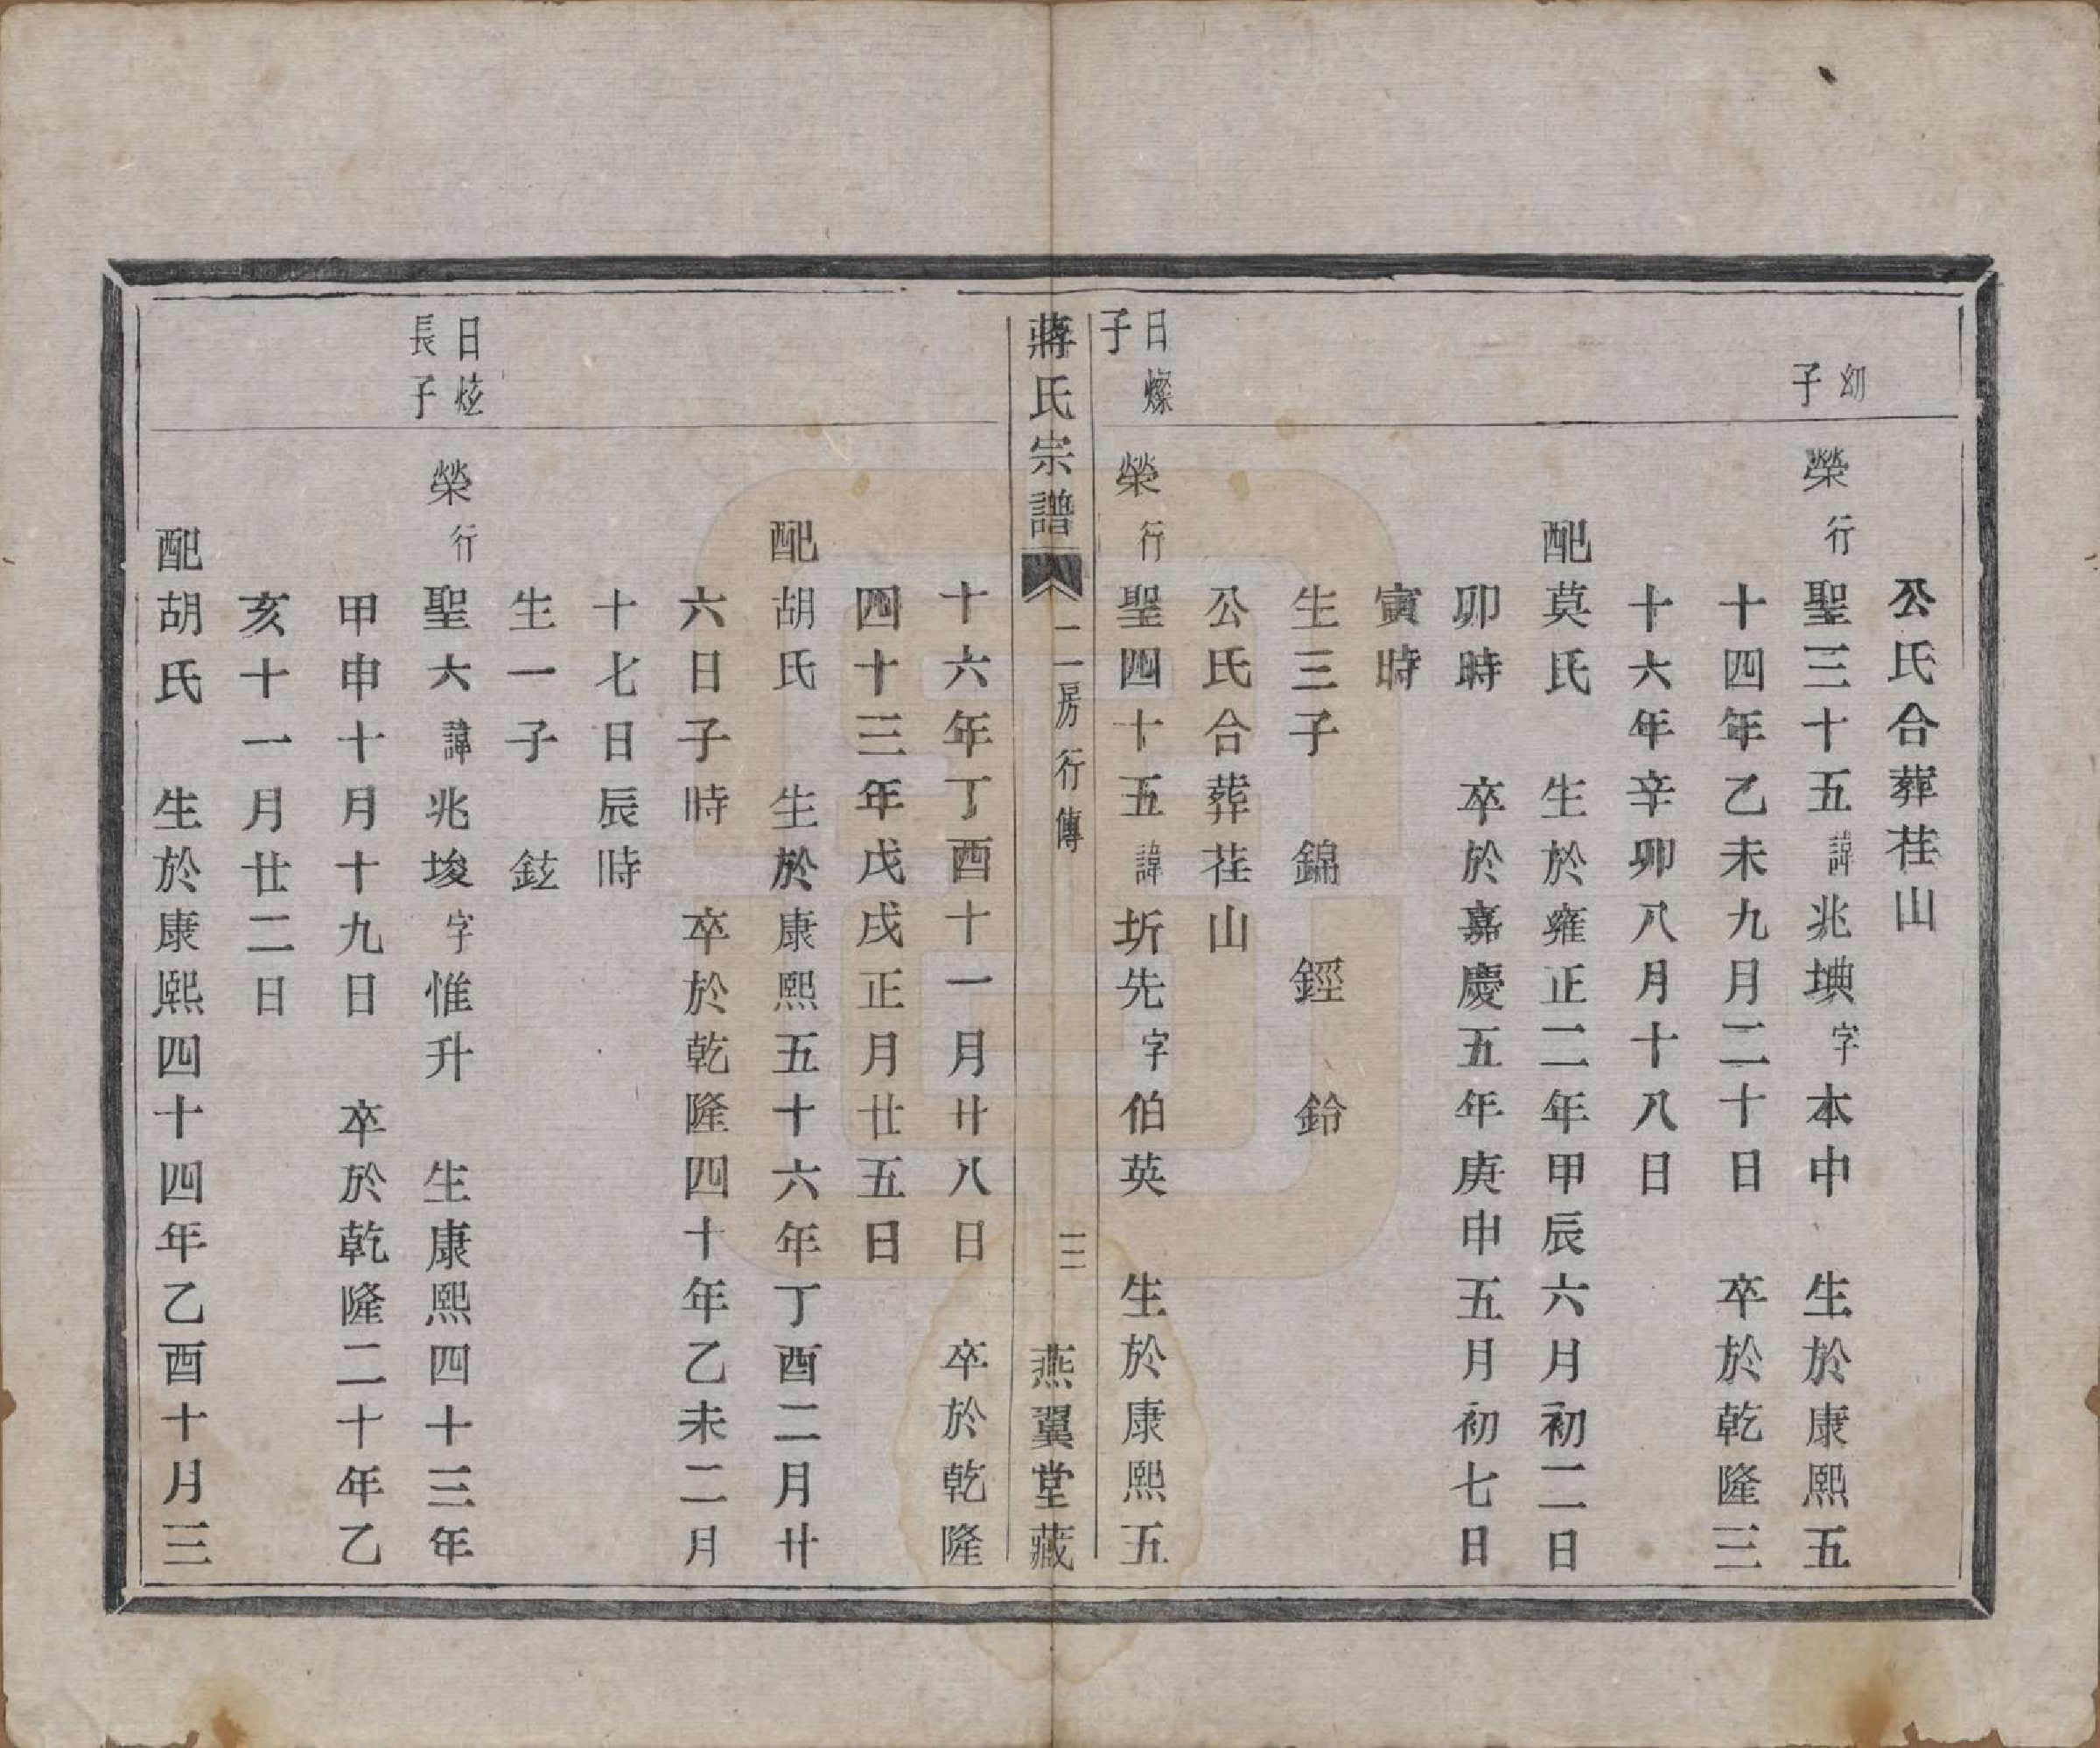 公氏合葬茬山
幼子
榮行聖三十五諱兆㙉字本中　生於康熙五
十四年乙未九月二十日　卒於乾隆三
十六年辛卯八月十八日
配莫氏　生於雍正二年甲辰六月初二日
卯時　卒於嘉慶五年庚申五月初七日
寅時
生三子　錦　鋞　鈴
公氏合葬茬山
日燦子
榮行聖四十五諱圻先字伯英　生於康熙五
蔣氏宗譜　二房行傳　三　燕翼堂藏
十六年丁酉十一月廿八日　卒於乾隆
四十三年戊戌正月廿五日
配胡氏　生於康熙五十六年丁酉二月廿
六日子時　卒於乾隆四十年乙未二月
十七日辰時
生一子　鉉
日炫長子
榮行聖六諱兆埈字惟升　生康熙四十三年
甲申十月十九日　卒於乾隆二十年乙
亥十一月廿二日
配胡氏　生於康熙四十四年乙酉十月三